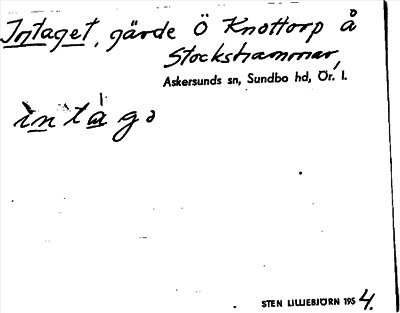 Intaget, gärde Ö Knottorp å
Stockshammar,
Askersunds sn, Sundbo hd, Ör. l.
ìntàgə
STEN LILLIEBJÖRN 1954.